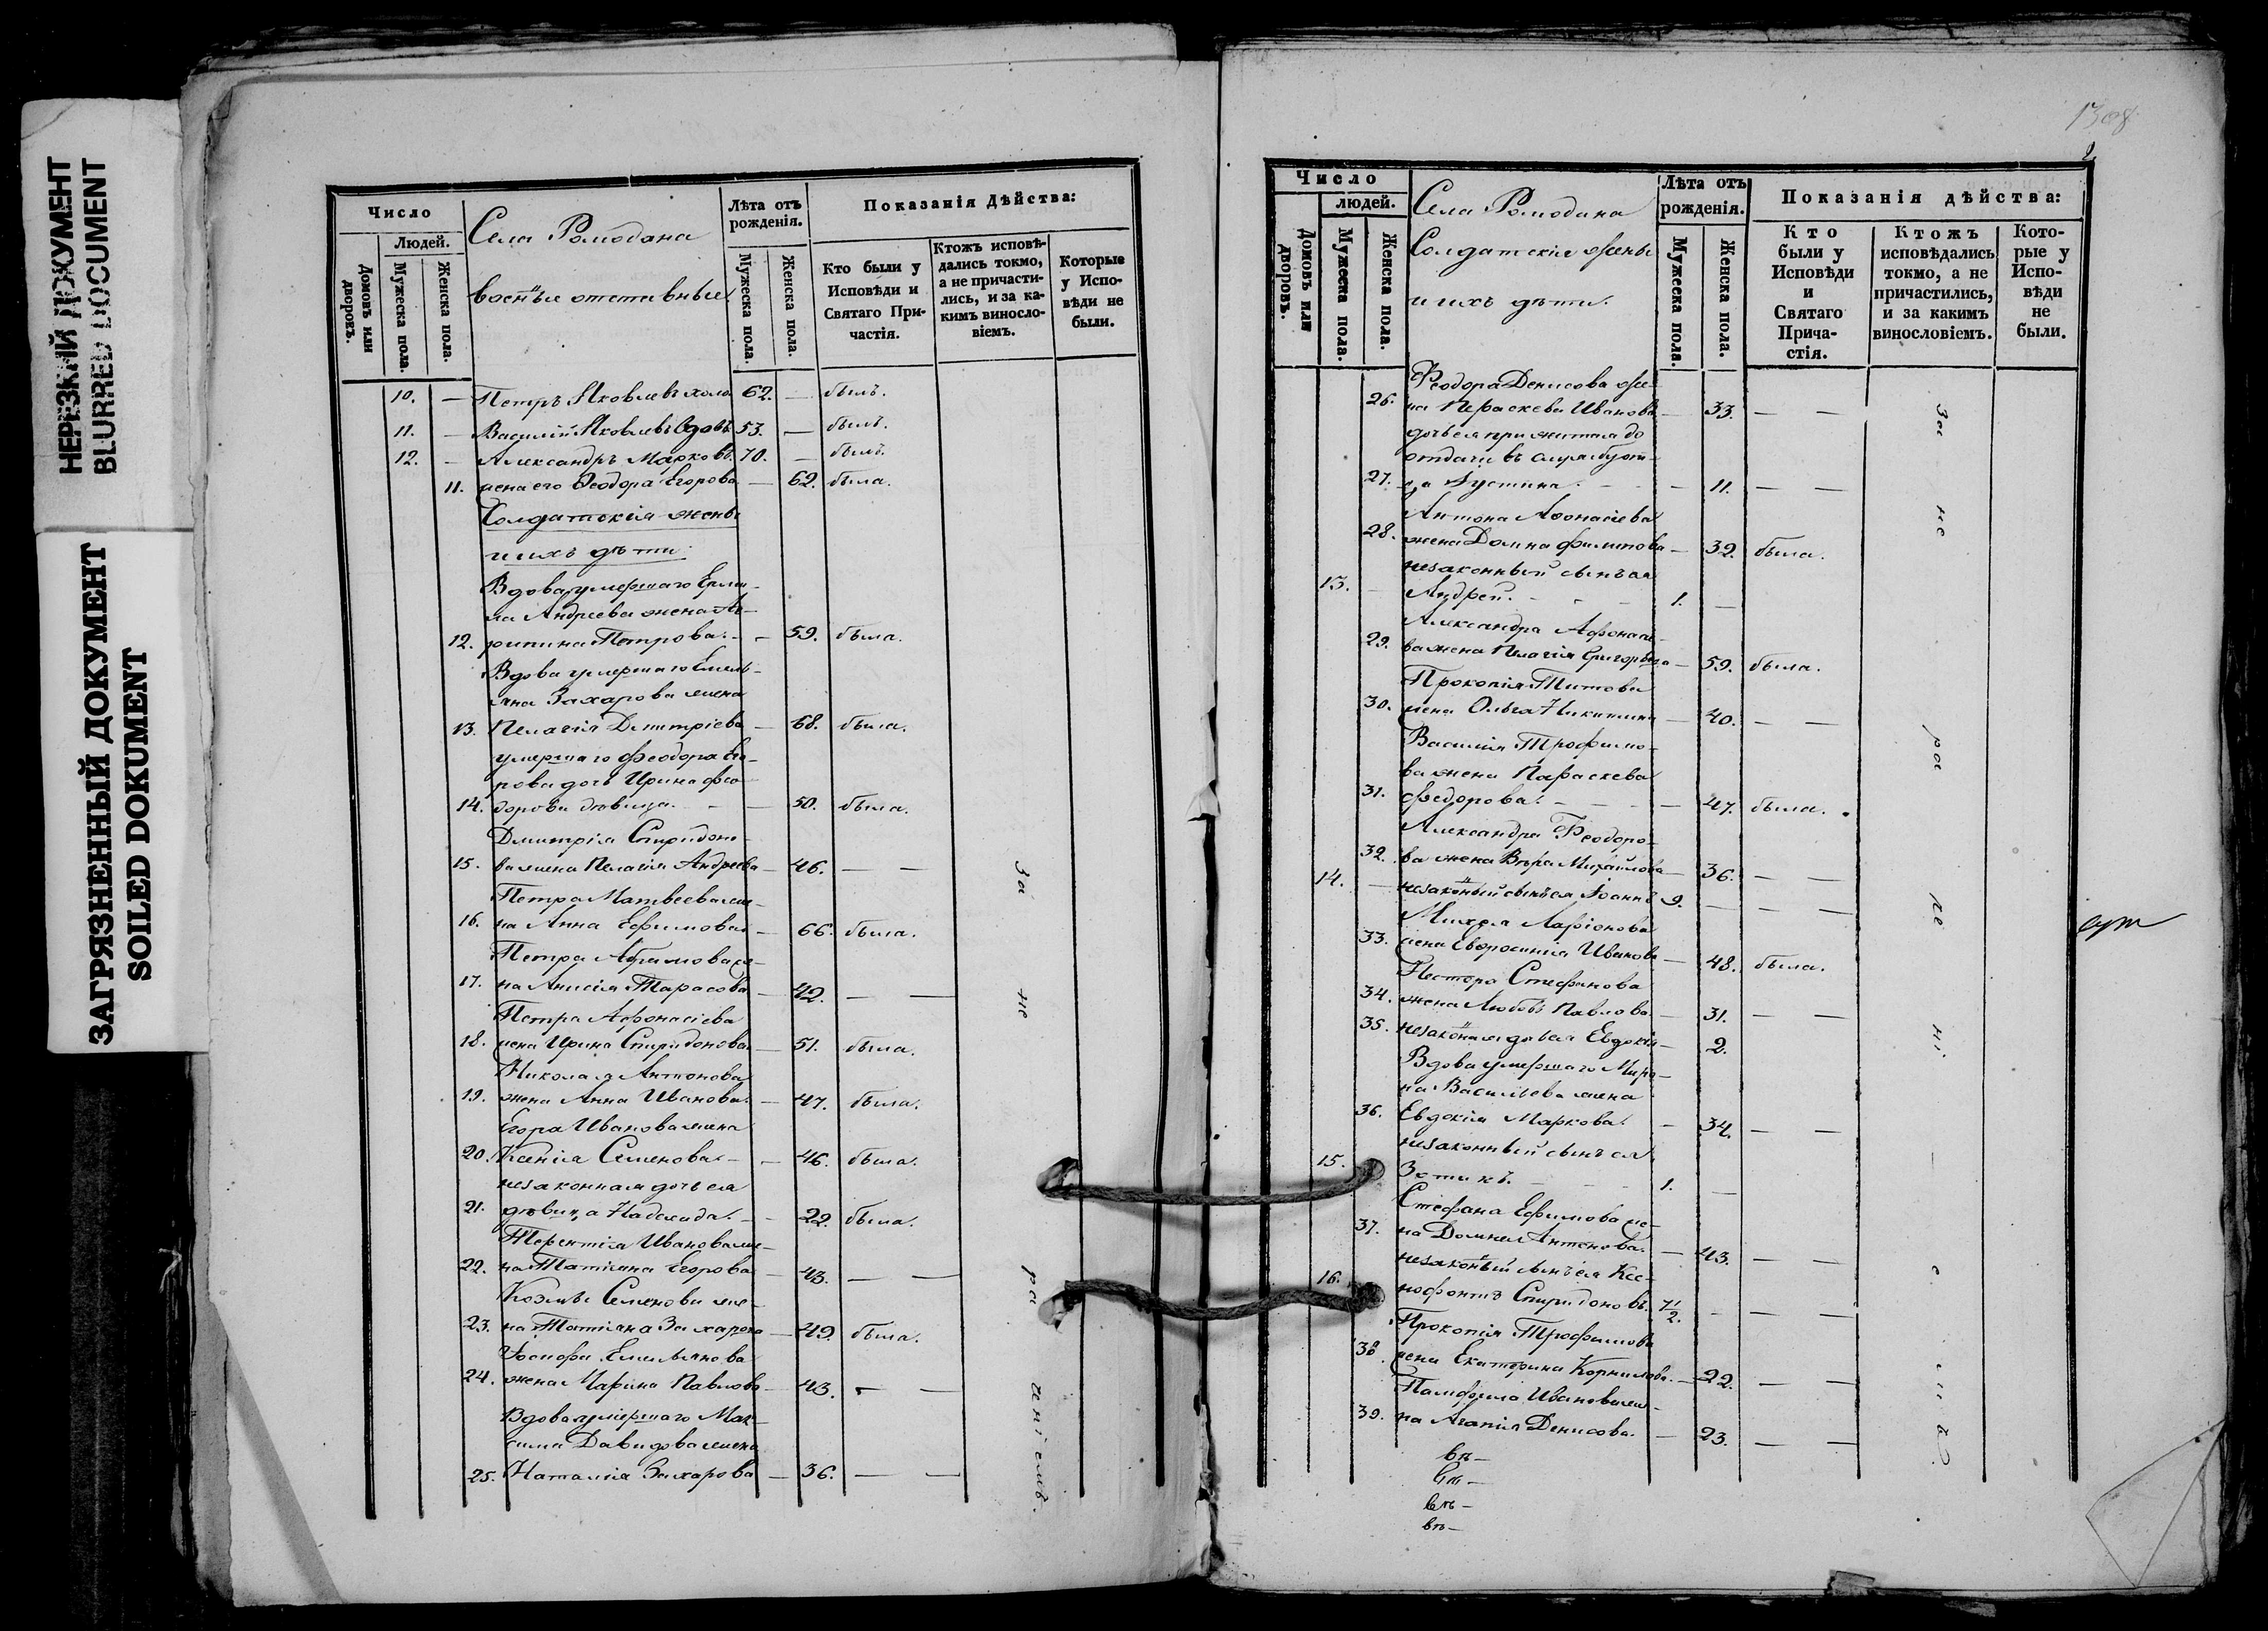 НЕРЕЗКИЙ ДОКУМЕНТ
BLURRED DOCUMENT
ЗАГРЯЗНЕННЫЙ ДОКУМЕНТ
SOILED DOKUMENT
Число
Людей.
Домовъ или дворовъ.
Мужеска пола.
Женска пола.
Села Ромодана
военые отставные
Лѣта отъ рожденія.
Мужеска пола.
Женска пола.
Показанія Дѣйства:
Кто были у Исповѣди и Святаго Причастія.
Ктожъ исповѣдались токмо, а не причастились, и за какимъ винословіемъ.
Которые у Исповѣди не были.
10. — Петръ Яковлевъ холо 62. — былъ.
11. — Василій Яковлевъ вдовъ 53. — былъ.
12. — Александръ Марковъ. 70. — былъ.
11. жена его Феодора Егорова — 62. была.
Солдатскія жены
и ихъ дѣти
Вдова умершаго Ерми-
ла Андреева жена Аг-
12. рипина Петрова. — 59. была.
Вдова умершаго Емель-
яна Захарова жена
13. Пелагія Дмитріева — 68. была.
умершаго Феодора Его-
рова дочь Ирина Фео-
14. дорова дѣвица. — 50. была.
Дмитрія Спиридоно-
15. ва жена Пелагія Андреева — 46. — —
Петра Матвеева же-
16. на Анна Ефимова — 66. была.
Петра Абрамова же-
17. на Анисія Тарасова — 42. — —
Петра Афонасіева
18. жена Ирина Спиридонова — 51. была.
Николая Антонова
19. жена Анна Иванова. — 47. была.
Егора Иванова жена
20. Ксенія Семенова — 46. была.
незаконная дочь ея
21. дѣвица Надежда. — 22. была.
Терентія Иванова же-
22. на Татіана Егорова — 43. — —
Козмы Семенова же-
23. на Татіана Захарова — 49. была.
Іосифа Емельянова
24. жена Марина Павлова — 43. — —
Вдова умершаго Мак-
сима Давидова жена
25. Наталія Захарова — 36. — —
За не ра ченіемъ.
1308
2
Число
людей.
Домовъ или дворовъ.
Мужеска пола.
Женска пола.
Села Ромодана
Солдатскія жены
и ихъ дѣти.
Лѣта отъ рожденія.
Мужеска пола.
Женска пола.
Показанія дѣйства:
Кто были у Исповѣди и Святаго Причастія.
Ктожъ исповѣдались токмо, а не причастились, и за какимъ винословіемъ.
Которые у Исповѣди не были.
Феодора Денисова же-
26. на Параскева Иванова — 33. — —
дочь ея прижитая до
отдачи въ службу от-
27. ца Іустина. — 11. — —
Антона Афонасіева
28. жена Домна Филипова — 32. была.
незаконный сынъ ея
13. — Андрей. — 1. —
Александра Афонасіе-
29. ва жена Пелагія Григорьева — 59. была.
Прокопія Титова
30. жена Ольга Никитина — 40. — —
Василія Трофимо-
ва жена Параскева
31. Федорова. — 47. была.
Александра Феодоро-
32. ва жена Вѣра Михайлова — 36. — —
14. — незаконый сынъ ея Іоаннъ 9. — — —
Михея Ларіонова
33. жена Евфросинія Иванова — 48. была.
Нестора Стефанова
34. жена Любовь Павлова — 31. — —
35. незаконая дочь ея Евдокія — 2.
Вдова умершаго Миро-
на Васильева жена
36. Евдокія Маркова. — 34. — —
незаконный сынъ ея
15. Зотикъ. — 1. —
Стефана Ефимова же-
37. на Домна Антонова. — 43. — —
незаконый сынъ ея Ксе-
16. нофонтъ Спиридоновъ. 7 1/2. — — —
Прокопія Трофимова
38. жена Екатерина Корнилова. — 22. — —
Памфила Иванова же-
39. на Агапія Денисова. — 23. — —
За не ра